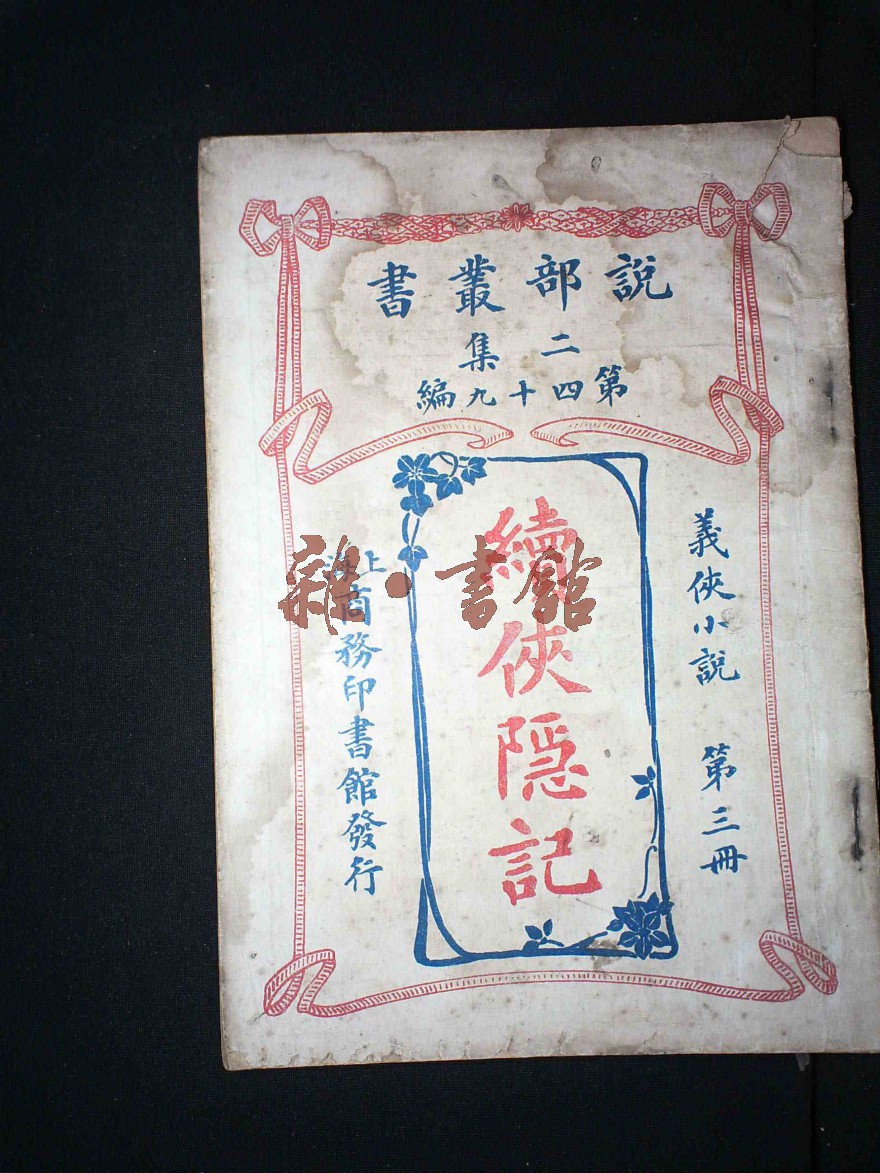 說部叢書
二集
第四十九編
義俠小說 第三冊
續俠隱記
上海商務印書館發行
雜·書館